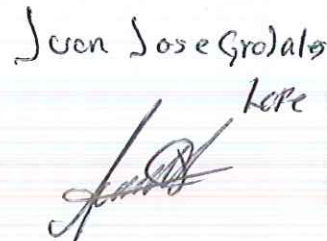 Juan Jose Grojales
Lope